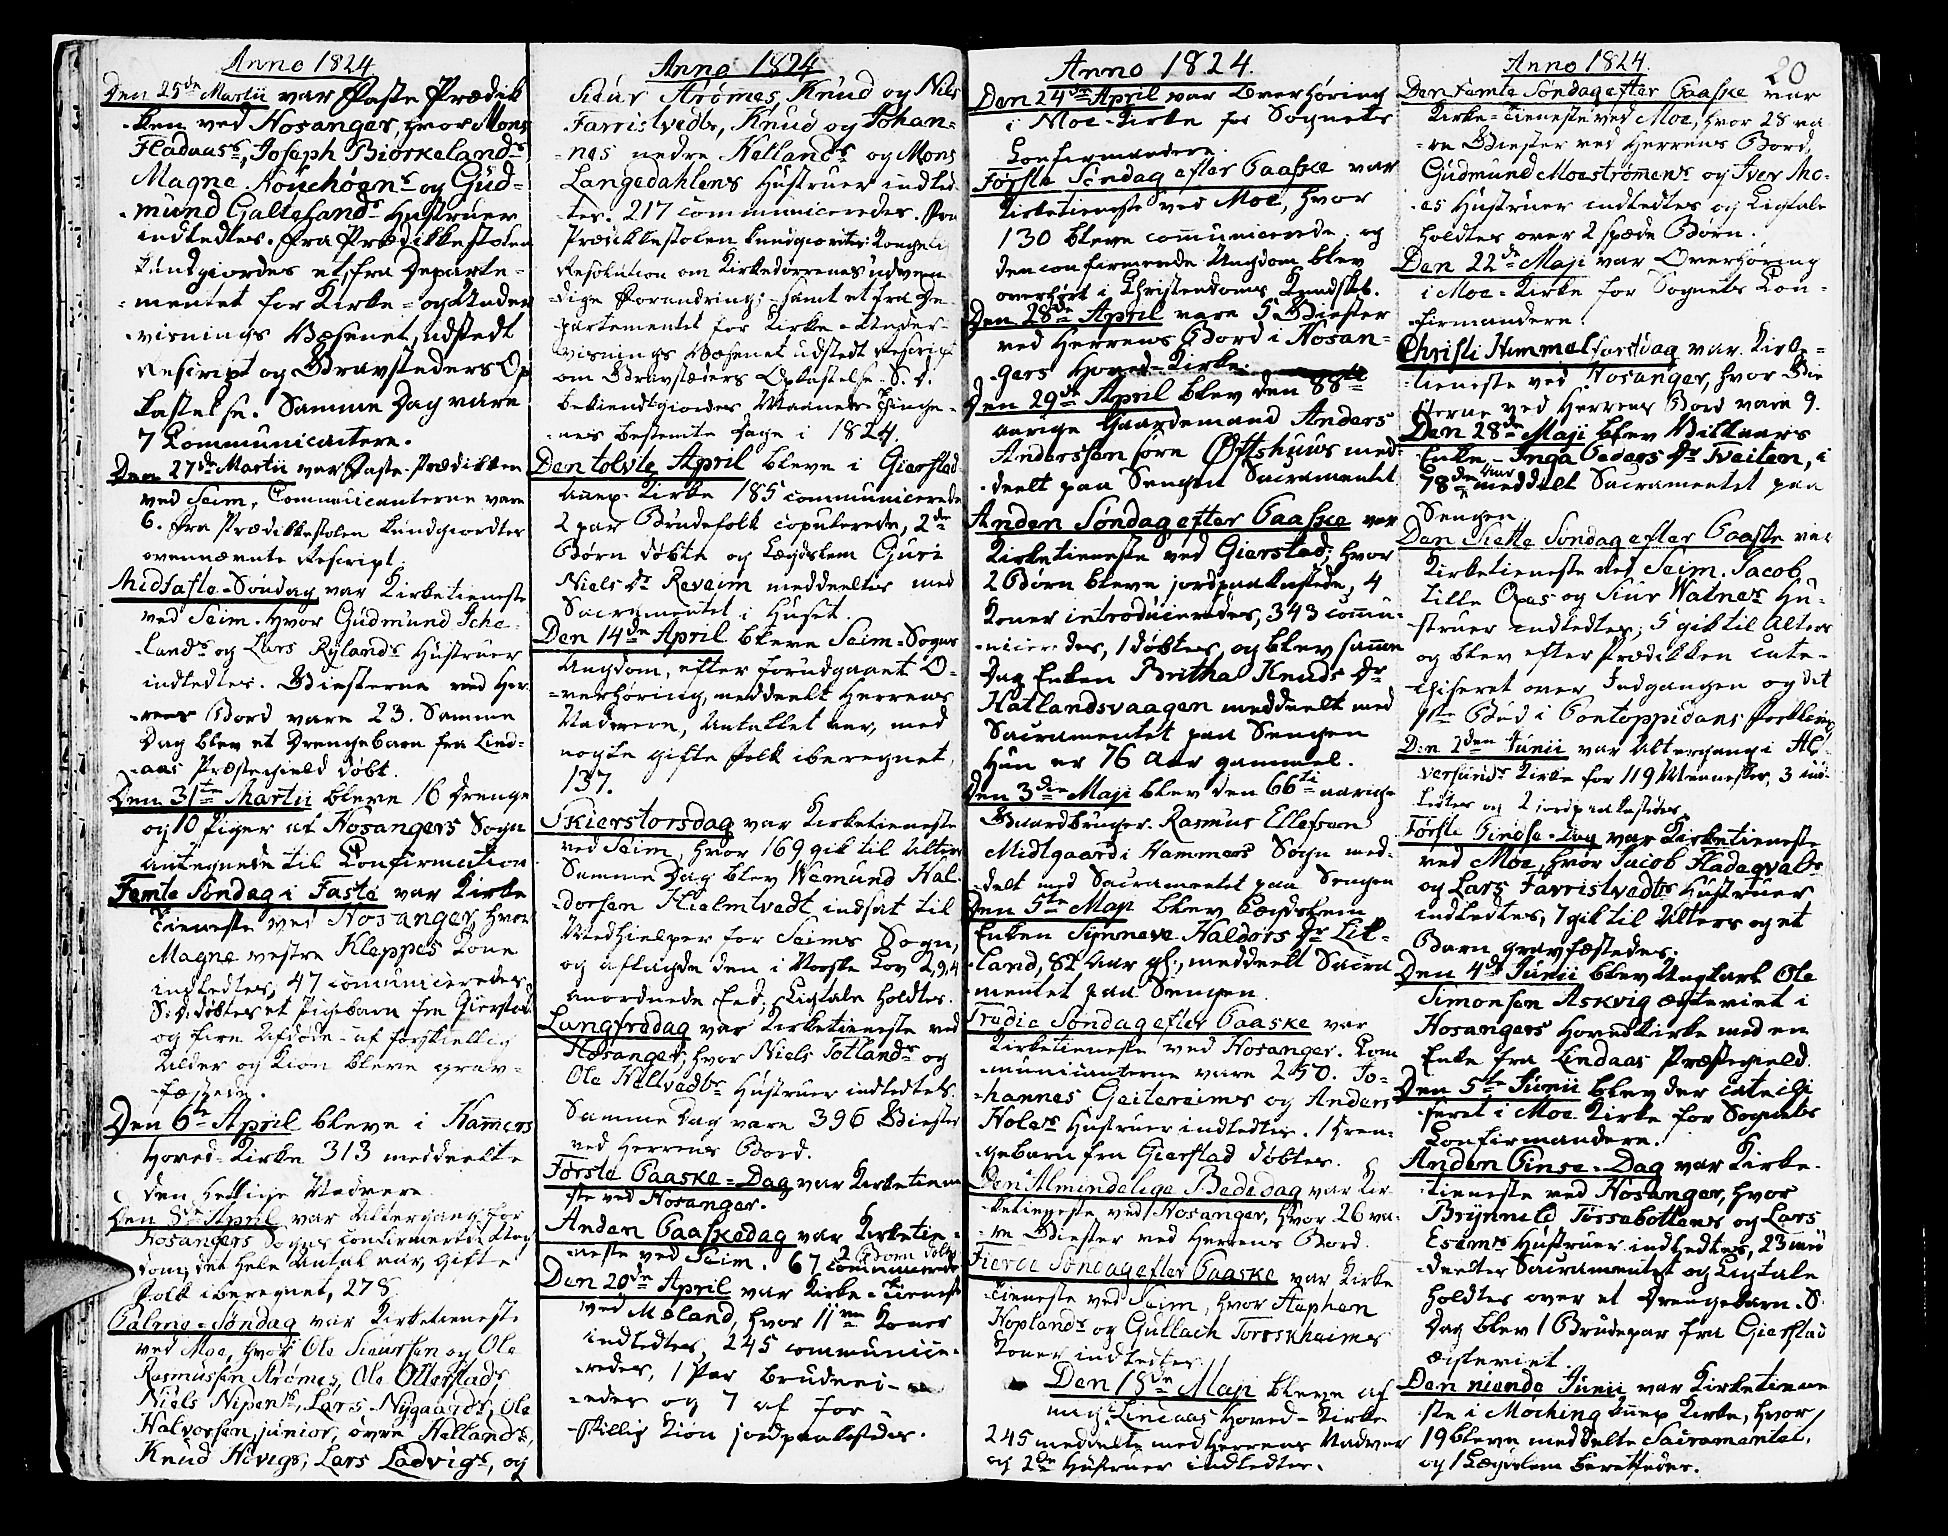 Anno 1824
Den 25de Martii var Faste Prædik
ken ved Hosanger, hvor Mons
Fladaas's, Joseph Biørkelands
Magne Houehøgns og Gud-
mund Galtelands Hustruer
indledtes. Fra Prædikkestolen
kundgiordes et, fra Departe-
mentet for Kirke- og Under
visnings Væsenet, udstedt
Rescript og Gravsteders Op
kastelse. Samme Dag vare
7 Communicantere.
Den 27de Martii var Faste-Prædikken
ved Seim. Communicanterne vare
6. Fra Prædikkestolen kundgiordtes
ovennævnte Rescript.
Midfaste-Søndag var Kirketieneste
ved Seim. hvor Gudmund Iche-
lands og Lars Rylands Hustruer
indledtes. Giesterne ved Her-
rens Bord vare 23. Samme
Dag blev et Drengebarn fra Lind-
aas Præstegield døbt.
Den 31te Martii bleve 16 Drenge
og 10 Piger af Hosangers Sogn
antegnede til Confirmation
Femte Søndag i Faste var Kirke
tieneste ved Hosanger, hvor
Magne vestre Kleppes Kone
indledtes, 47 communiceredes
S. D. døbtes et Pigebarn fra Gierstad
og fire Afdøde af forskiellig
Alder og Kion bleve grav-
fæstede.
Den 6te April bleve i Hammers
Hoved-Kirke 313 meddeelte
den hellige Nadvere.
Den 8de April var Altergang for
Hosangers Sogns confirmerede Ung
dom, det hele Antal var, gifte
Folk iberegnet, 278.
Palme-Søndag var Kirketieneste
ved Moe, hvor Ole Siursen og Ole
Rasmussen Strømes, Ole Otterstads
Niels Nipens, Lars Nygaards, Ole
Halvorsen junior, øvre Hellands,
Knud Hivegs, Lars Ladvigs, og
Anno 1824
Siur Strømes, Knud og Nils
Farristvedts, Knud og Johan-
nes nedre Hellands og Mons
Langedahlens Hustruer indled-
tes. 217 communiceredes. Fra
Prædikkestolen kundgiordtes Kongelig
Resolution om Kirkedørrenes udven
dige Forandring; samt et fra De-
partementet for Kirke-Under-
visnings Væsenet udstedt Rescript
om Gravstæders Opkastelse. S. D.
bekiendtgiordes Maaneds Tinge-
nes bestemte Dage i 1824.
Den tolvte April bleve i Gierstad
Annex-Kirke 185 communicerede
2 par Brudefolk copulerede, 2de
Børn døbte og Lægdslem Guri
Niels Dr Reveim meddeeltes med
Sacramentet i Huset.
Den 14de April bleve Seim-Sogns
Ungdom, efter forudgaaet O-
verhøring, meddeelt Herrens
Nadvere, Antallet var, med
nogle gifte Folk iberegnet,
137.
Skierstorsdag var Kirketieneste
ved Seim, hvor 169 gik til Alters
Samme Dag blev Wemund Hal-
dorsen Hielmtvedt indsat til
Medhielper for Seims Sogn,
og aflagde den i Norske Lov 2,9,4
anordnede Eed; Ligtale holdtes.
Langfredag var Kirketieneste ved
Hosanger, hvor Niels Totlands og
Ole Heltvedts Hustruer indledtes.
Samme Dag vare 396 Giester
ved Herrens Bord.
Første Paaske-Dag var Kirketiene
ste ved Hosanger.
Anden Paaskedag var Kirketie-
neste ved Seim. 2 Børn døbt
67 communicerede
Den 20de April var Kirke-Tieneste
ved Moland, hvor 11 Koner
indledtes, 245 communice-
redes, 1 Par brudevi-
edes og 7 af for-
skiellig Kion jordpaakastedes.
Anno 1824.
Den 24de April var Overhøring
i Moe-Kirke for Sognets
Confirmandere.
Første Søndag efter Paaske var
Kirketieneste ved Moe, hvor
130 bleve communicerede, og
den confirmerede Ungdom blev
overhørt i Christendoms Kundskab.
Den 28de April vare 5 Giester
ved Herrens Bord i Hosan-
gers Hoved-Kirke.
Den 29de April blev den 88de
aarige Gaardemand Anders
Anderssen søre Øftshuus med-
deelt paa Sengen Sacramentet
Anden Søndag efter Paaske var
Kirketieneste ved Gierstad; hvor
2 Børn bleve jordpaakastede, 4
Koner introduceredes, 343 commu-
niceredes, 1 døbtes, og blev samme
Dag Enken Britha Knuds Dr
Hatlandsvaagen meddeelt med
Sacramentet paa Sengen
Hun er 76 Aar gammel.
Den 3die Maji blev den 66ti aarige
Gaardbruger Rasmus Ellefsen
Midtgaard i Hammers Sogn med-
delt med Sacramentet paa Sengen
Den 5te Maji blev Lægdslem
Enken Synneve Haldors Dr Lil-
land, 82 Aar gl., meddeelt Sacra
mentet paa Sengen.
Tredie Søndag efter Paaske var
Kirketieneste ved Hosanger. Com
municanterne vare 250. Jo-
hannes Geitereims og Anders
Holes Hustruer indledtes. 1 Dren-
gebarn fra Gierstad døbtes.
Den Almindelige Bededag var Kir-
ketieneste ved Hosanger, hvor 26 va-
re Giester ved Herrens Bord.
Fierde Søndag efter Paaske var Kirke
tieneste ved Seim, hvor Stephen
Hoplands og Gullach Torsskheimes
Koner indledtes.
Den 18de Maji bleve af
mig i Lindaas Hoved-Kirke
245 meddelte med Herrens Nadver
og 2de Hustruer indledtes.
Anno 1824.
20
Den Femte Søndag efter Paaske var
Kirke-Tieneste ved Moe, hvor 28 va
re Giester ved Herrens Bord,
Gudmund Moestrømens og Iver Mo-
es Hustruer indledtes og Ligtale
holdtes over 2 spæde Børn.
Den 22de Maji var Overhøring
i Moe-Kirke for Sognets Con-
firmandere.
Christi Himmelfartsdag var Kirke-
tieneste ved Hosanger, hvor Gie
sterne ved Herrens Bord vare 9.
Den 28de Maji blev Vilkaars
Enke Inga Peders Dr Tveiten, i
78de Aar meddelt Sacramentet paa
Sengen.
Den Siette Søndag efter Paaske var
Kirketieneste ved Seim. Jacob
Lille Opes og Siur Watnes Hu-
struer indledtes; 5 gik til Alters
og blev efter Prædikken cate-
chiseret over Indgangen og det
1ste Bud i Pontoppidans Forklaring
Den 2den Junii var Altergang i Al-
versunds Kirke for 119 Mennesker, 3 ind-
ledtes og 2 jordpaakastedes.
Første Pindse-Dag var Kirketieneste
ved Moe, hvor Jacob Fladeqvals
og Lars Farristvedts Hustruer
indledtes, 7 gik til Alters og et
Barn gravfæstedes.
Den 4de Junii blev Ungkarl Ole
Simonsen Askvig ægteviet i
Hosangers Hovedkirke med en
Enke fra Lindaas Præstegield.
Den 5te Junii blev der catechi
seret i Moe Kirke for Sognets
Confirmandere.
Anden Pinse-Dag var Kirke-
tieneste ved Hosanger, hvor
Brynnild Torsebottens og Lars
Esems Hustruer indledtes, 23 med
deeltes Sacramentet og Ligtale
holdtes over et Drengebarn. S.
Dag blev 1 Brudepar fra Gierstad
ægteviet.
Den niende Junii var Kirketiene
ste i Moching Annex Kirke, hvor
19 bleve meddelte Sacramentet,
og 1 Lægdslem berettedes.